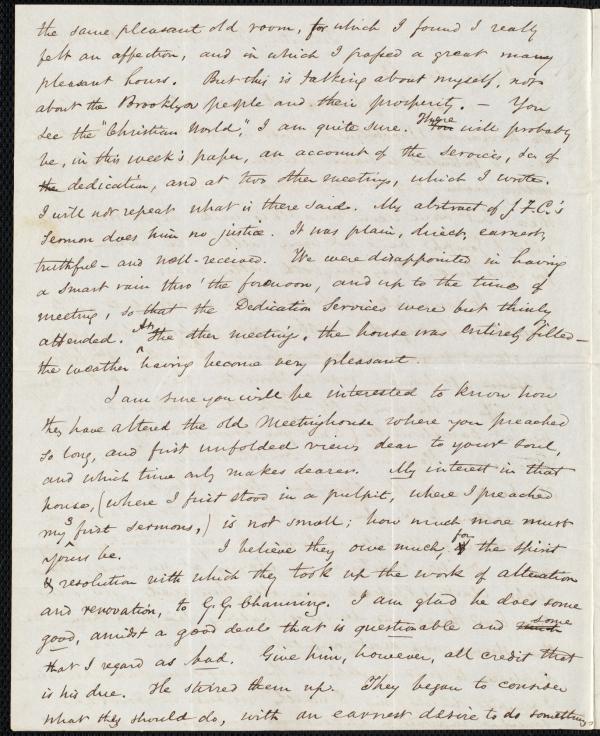 the same pleasant old room, for which I found I really
felt an affection, and in which I passed a great many
pleasant hours. But this is talking about myself, not
about the Brooklyn people and their prosperity. — You
see the "Christian World", I am quite sure. There will probably
be, in this week's paper, an account of the services, &c of
the dedication, and at two other meetings, which I wrote.
I will not repeat what is there said. My abstract of J.F.C.'s
Sermon does him no justice. It was plain, direct, earnest,
truthful — and well-received. We were disappointed in having
a smart rain thro' the forenoon, and up to the time of
meeting, so that the Dedication Services were but thinly
attended. At the other meetings, the house was entirely filled —
the weather having become very pleasant.
I am sure you will be interested to know how
they have altered the old Meetinghouse where you preached
so long, and first unfolded views dear to your soul,
and which time only makes dearer. My interest in that
house, (where I first stood in a pulpit, where I preached
my 3 first sermons,) is not small; how much more must
yours be. I believe they owe much, for the spirit
& resolution with which they took up the work of alteration
and renovation, to G.G. Channing. I am glad he does some
good, amidst a good deal that is questionable and some
that I regard as bad. Give him, however, all credit that
is his due. He stirred them up. They began to consider
what they should do, with an earnest desire to do something